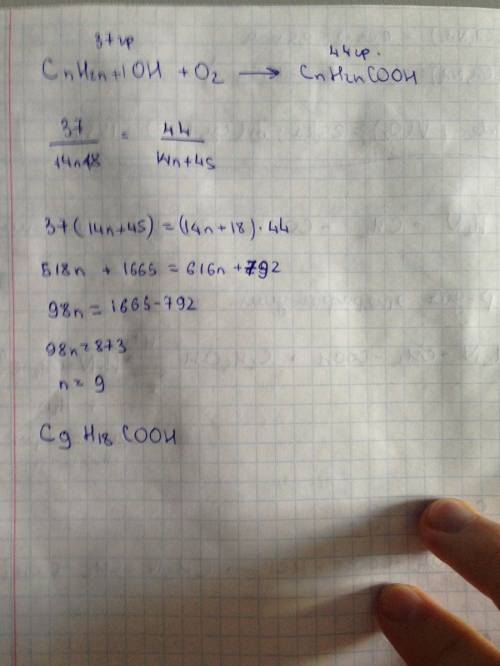 37гр 44гр.
CnH2n+1OH + O2 → CnH2nCOOH
37/14n+18 = 44/14n+45
37(14n+45) = (14n+18)·44
518n + 1665 = 616n + 792
98n = 1665-792
98n = 873
n = 9
C9 H18 COOH